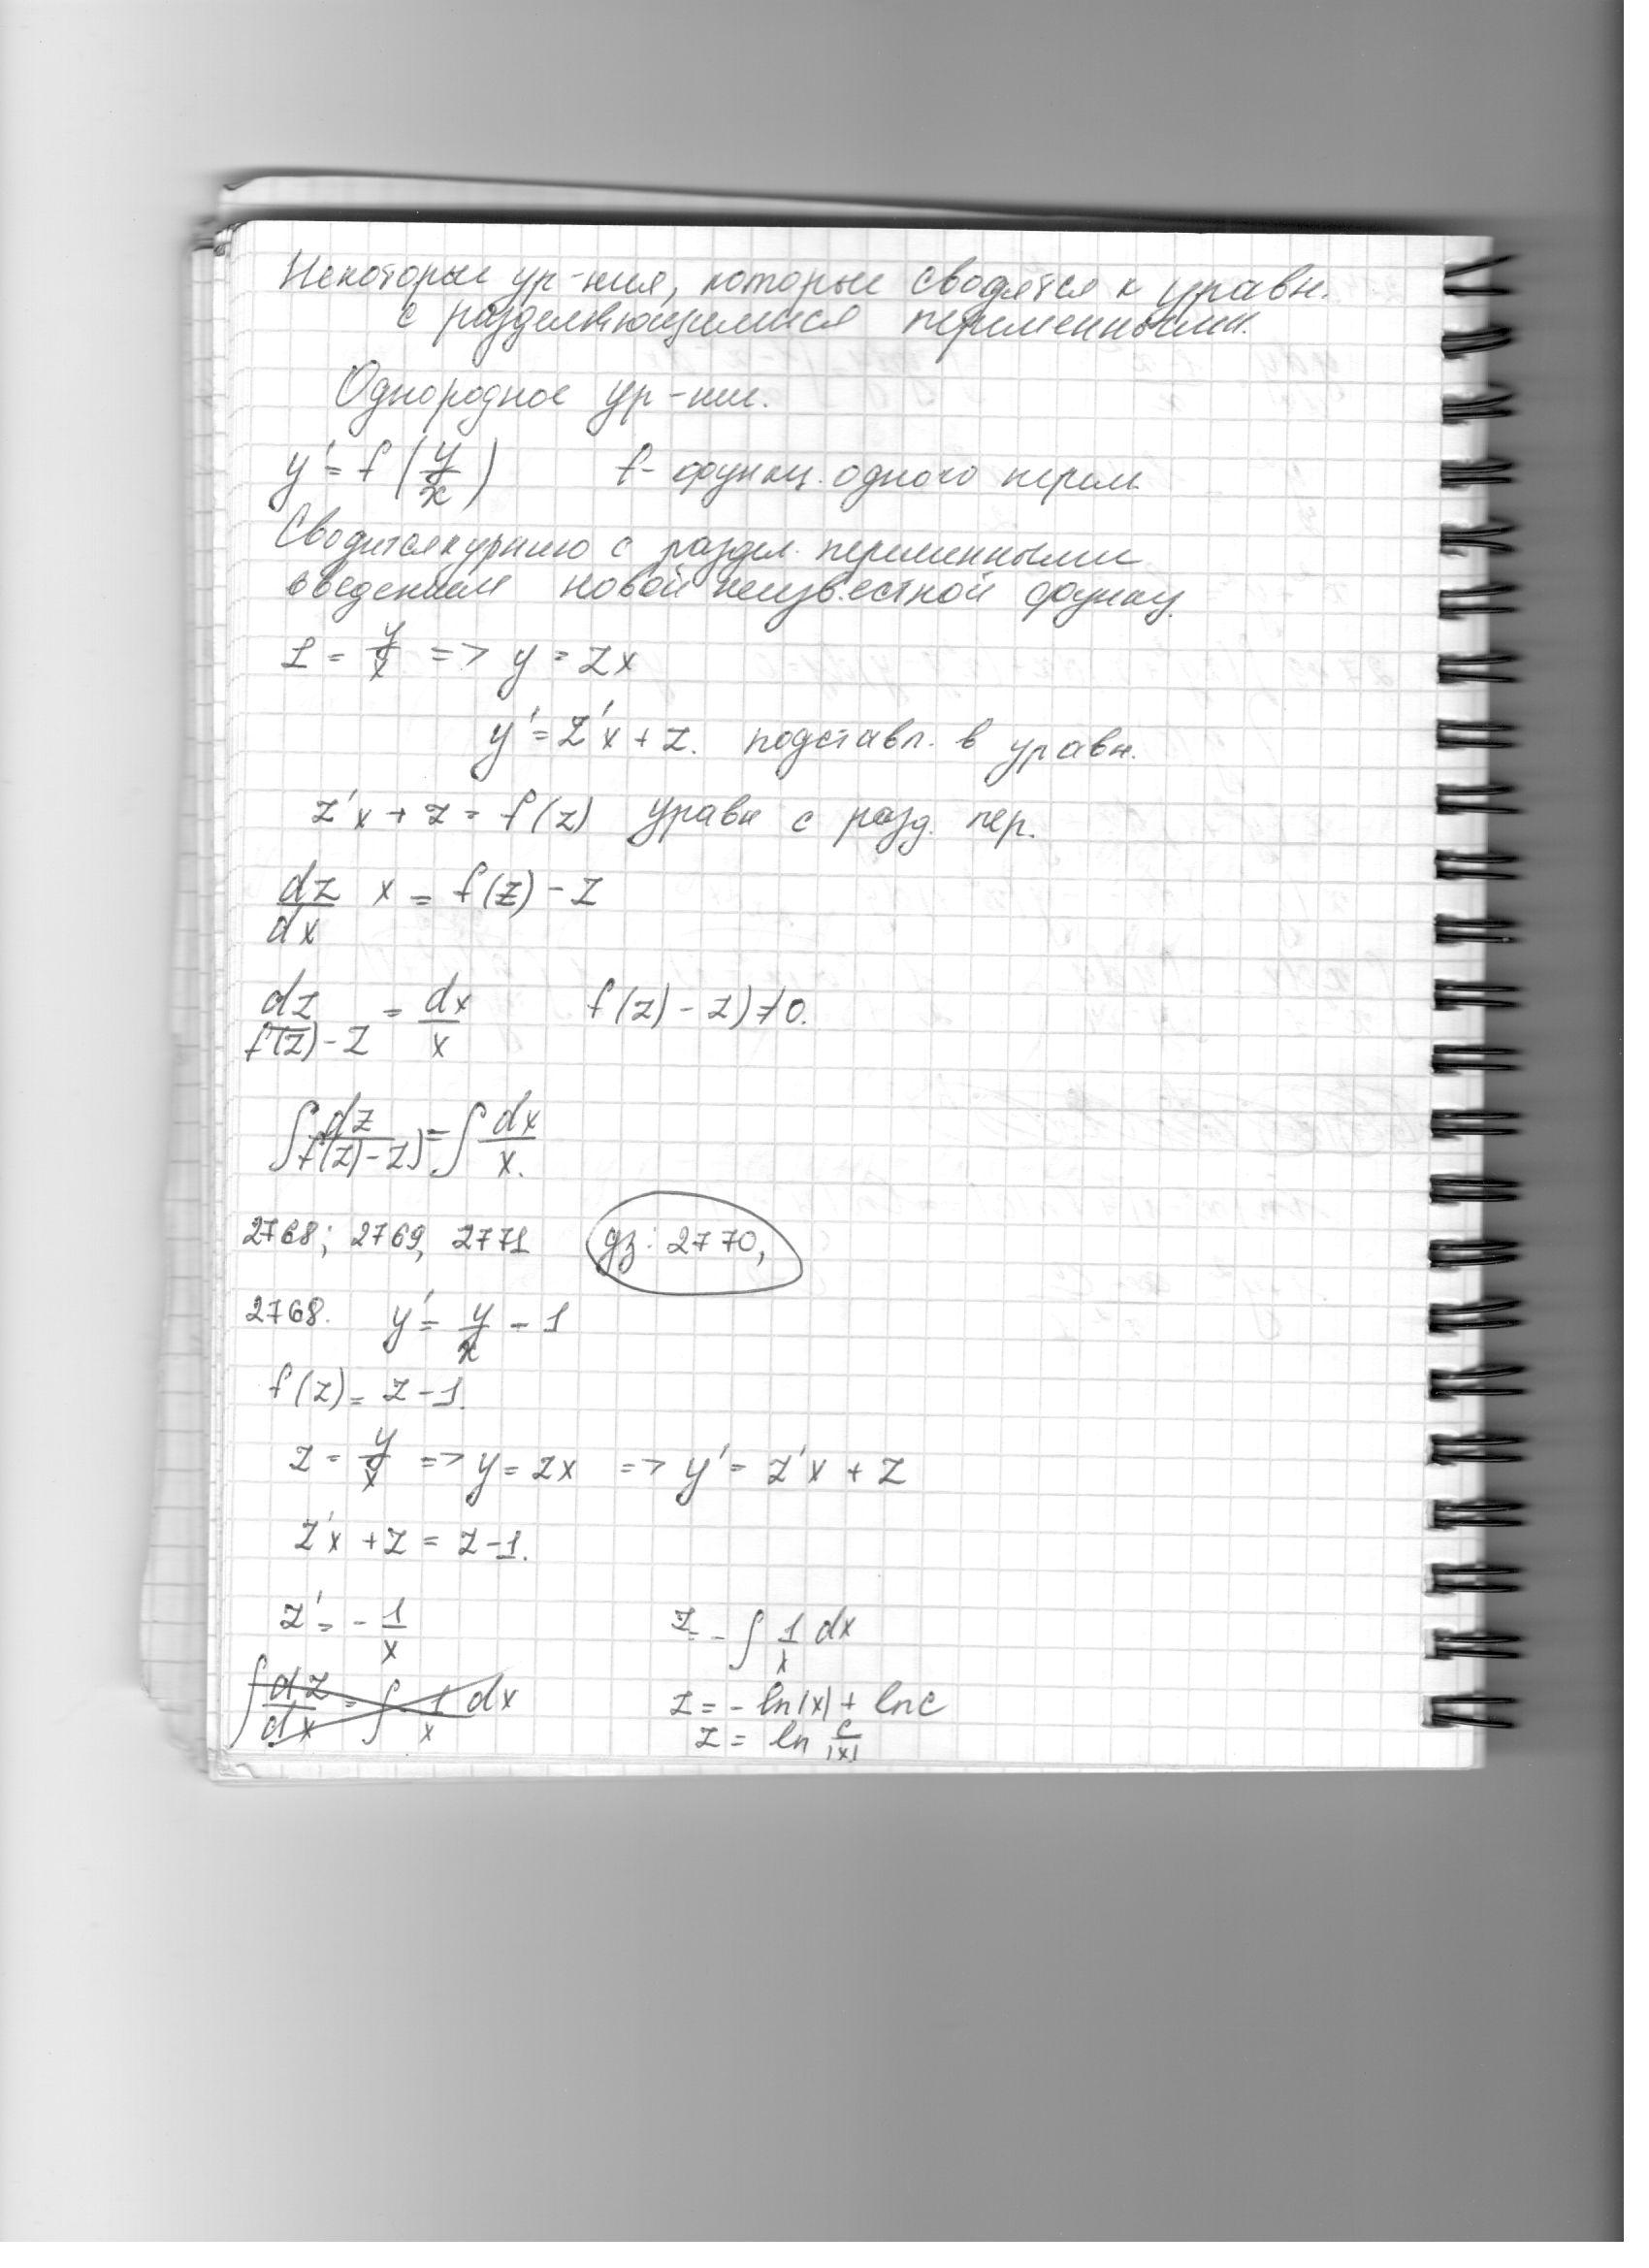 Некоторые ур-ния, которые сводятся к уравн.
с разделяющимися переменными.
Однородное ур-ние.
y' = f(y/x) f- функц. одного перем.
Сводится к ур-нию с раздел. переменными
введением новой неизвестной функц.
z = y/x => y = zx
y' = z'x + z. подставл. в уравн.
z'x + z = f(z) уравн с разд. пер.
dz/dx x = f(z) - z
dz/(f(z) - z) = dx/x f(z) - z) ≠ 0.
∫ dz/(f(z) - z) = ∫ dx/x.
2768; 2769, 2771 дз: 2770,
2768. y' = y/x - 1
f(z) = z - 1.
z = y/x => y = zx => y' = z'x + z
z'x + z = z - 1.
z' = - 1/x z = - ∫ 1/x dx
∫ dz/dx = ∫ - 1/x dx z = - ln|x| + ln c
z = ln c/|x|